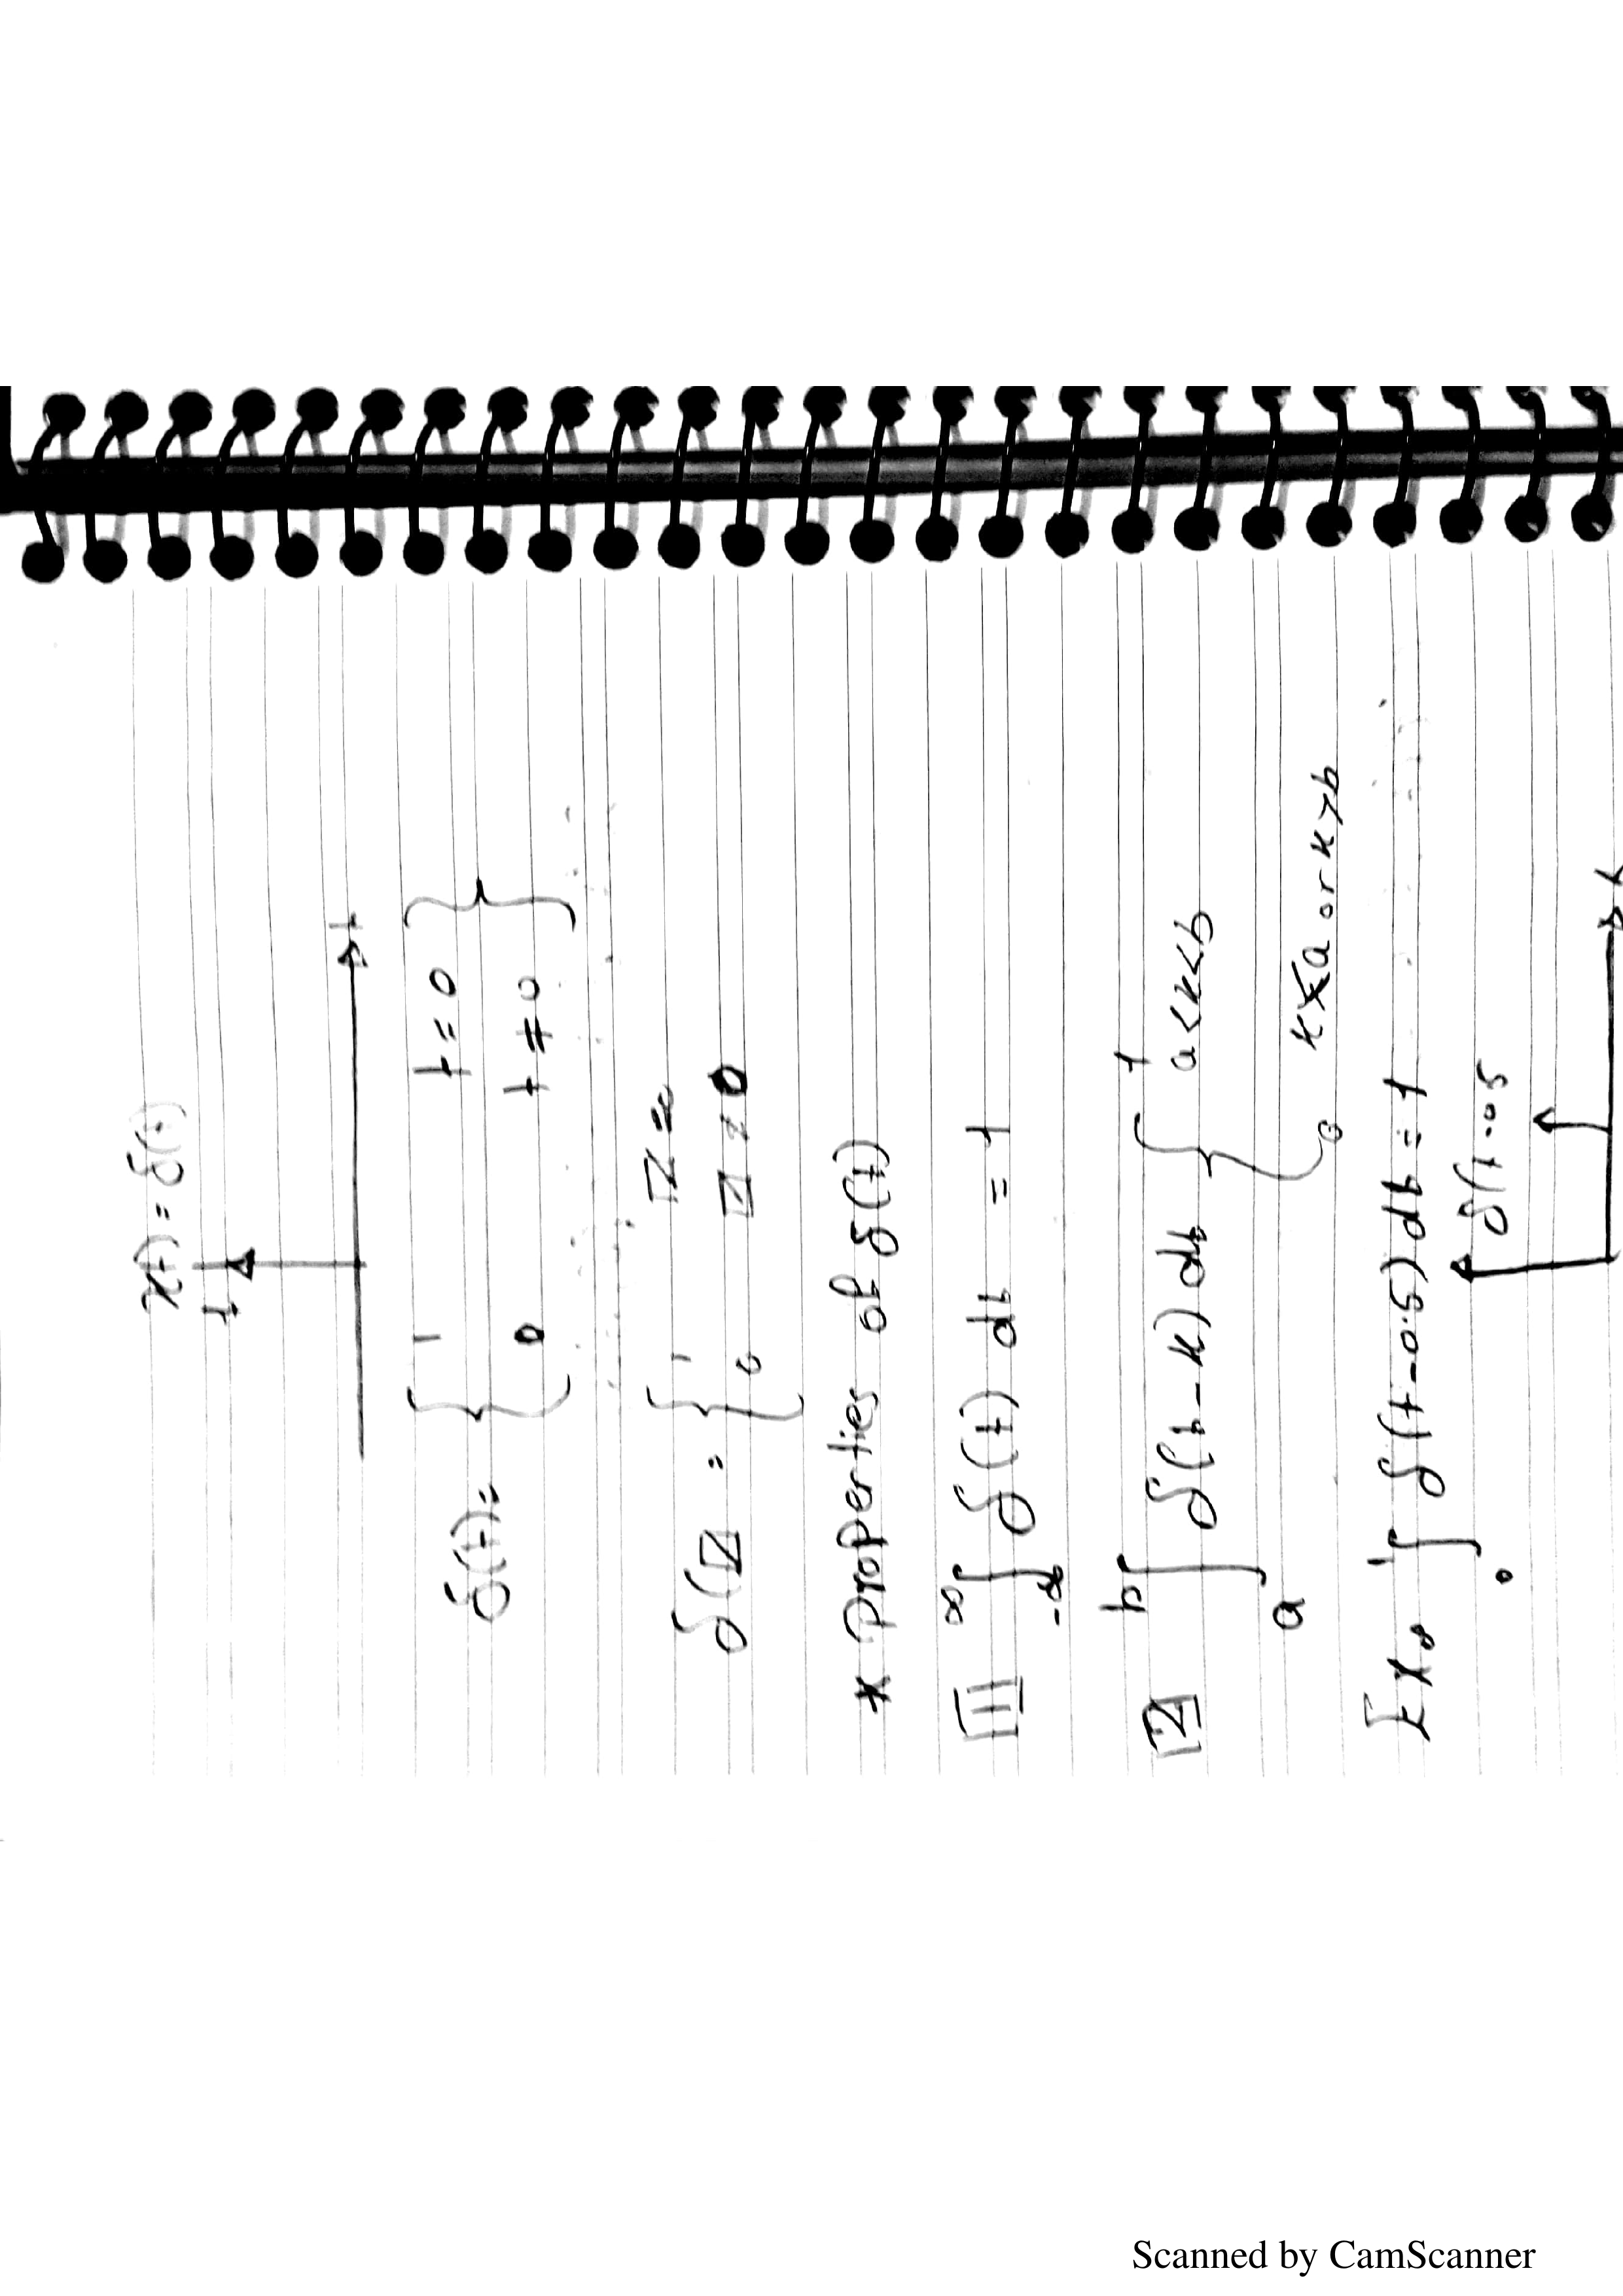 x(t) = δ(t)
1
t
δ(t) = { 1 t = 0 }
0 t ≠ 0
δ( = { 1
0 ≠ 0
* Properties of δ(t)
1 ∫ δ(t) dt = 1
∞
-∞
2 ∫ δ(t-k) dt { 1 a<k<b
b
a
0 k<a or k>b
Ex: ∫ δ(t-0.5) dt = 1
1
0
δ(t-0.5
t
Scanned by CamScanner